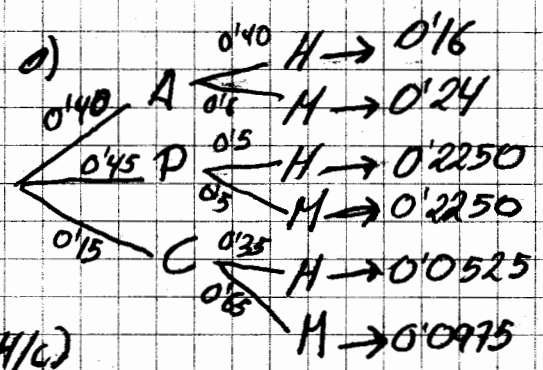 a)
0'40 A 0'40 H → 0'16
0'6 M → 0'24
0'45 P 0'5 H → 0'2250
0'5 M → 0'2250
0'15 C 0'35 H → 0'0525
0'65 M → 0'0975
H/C)